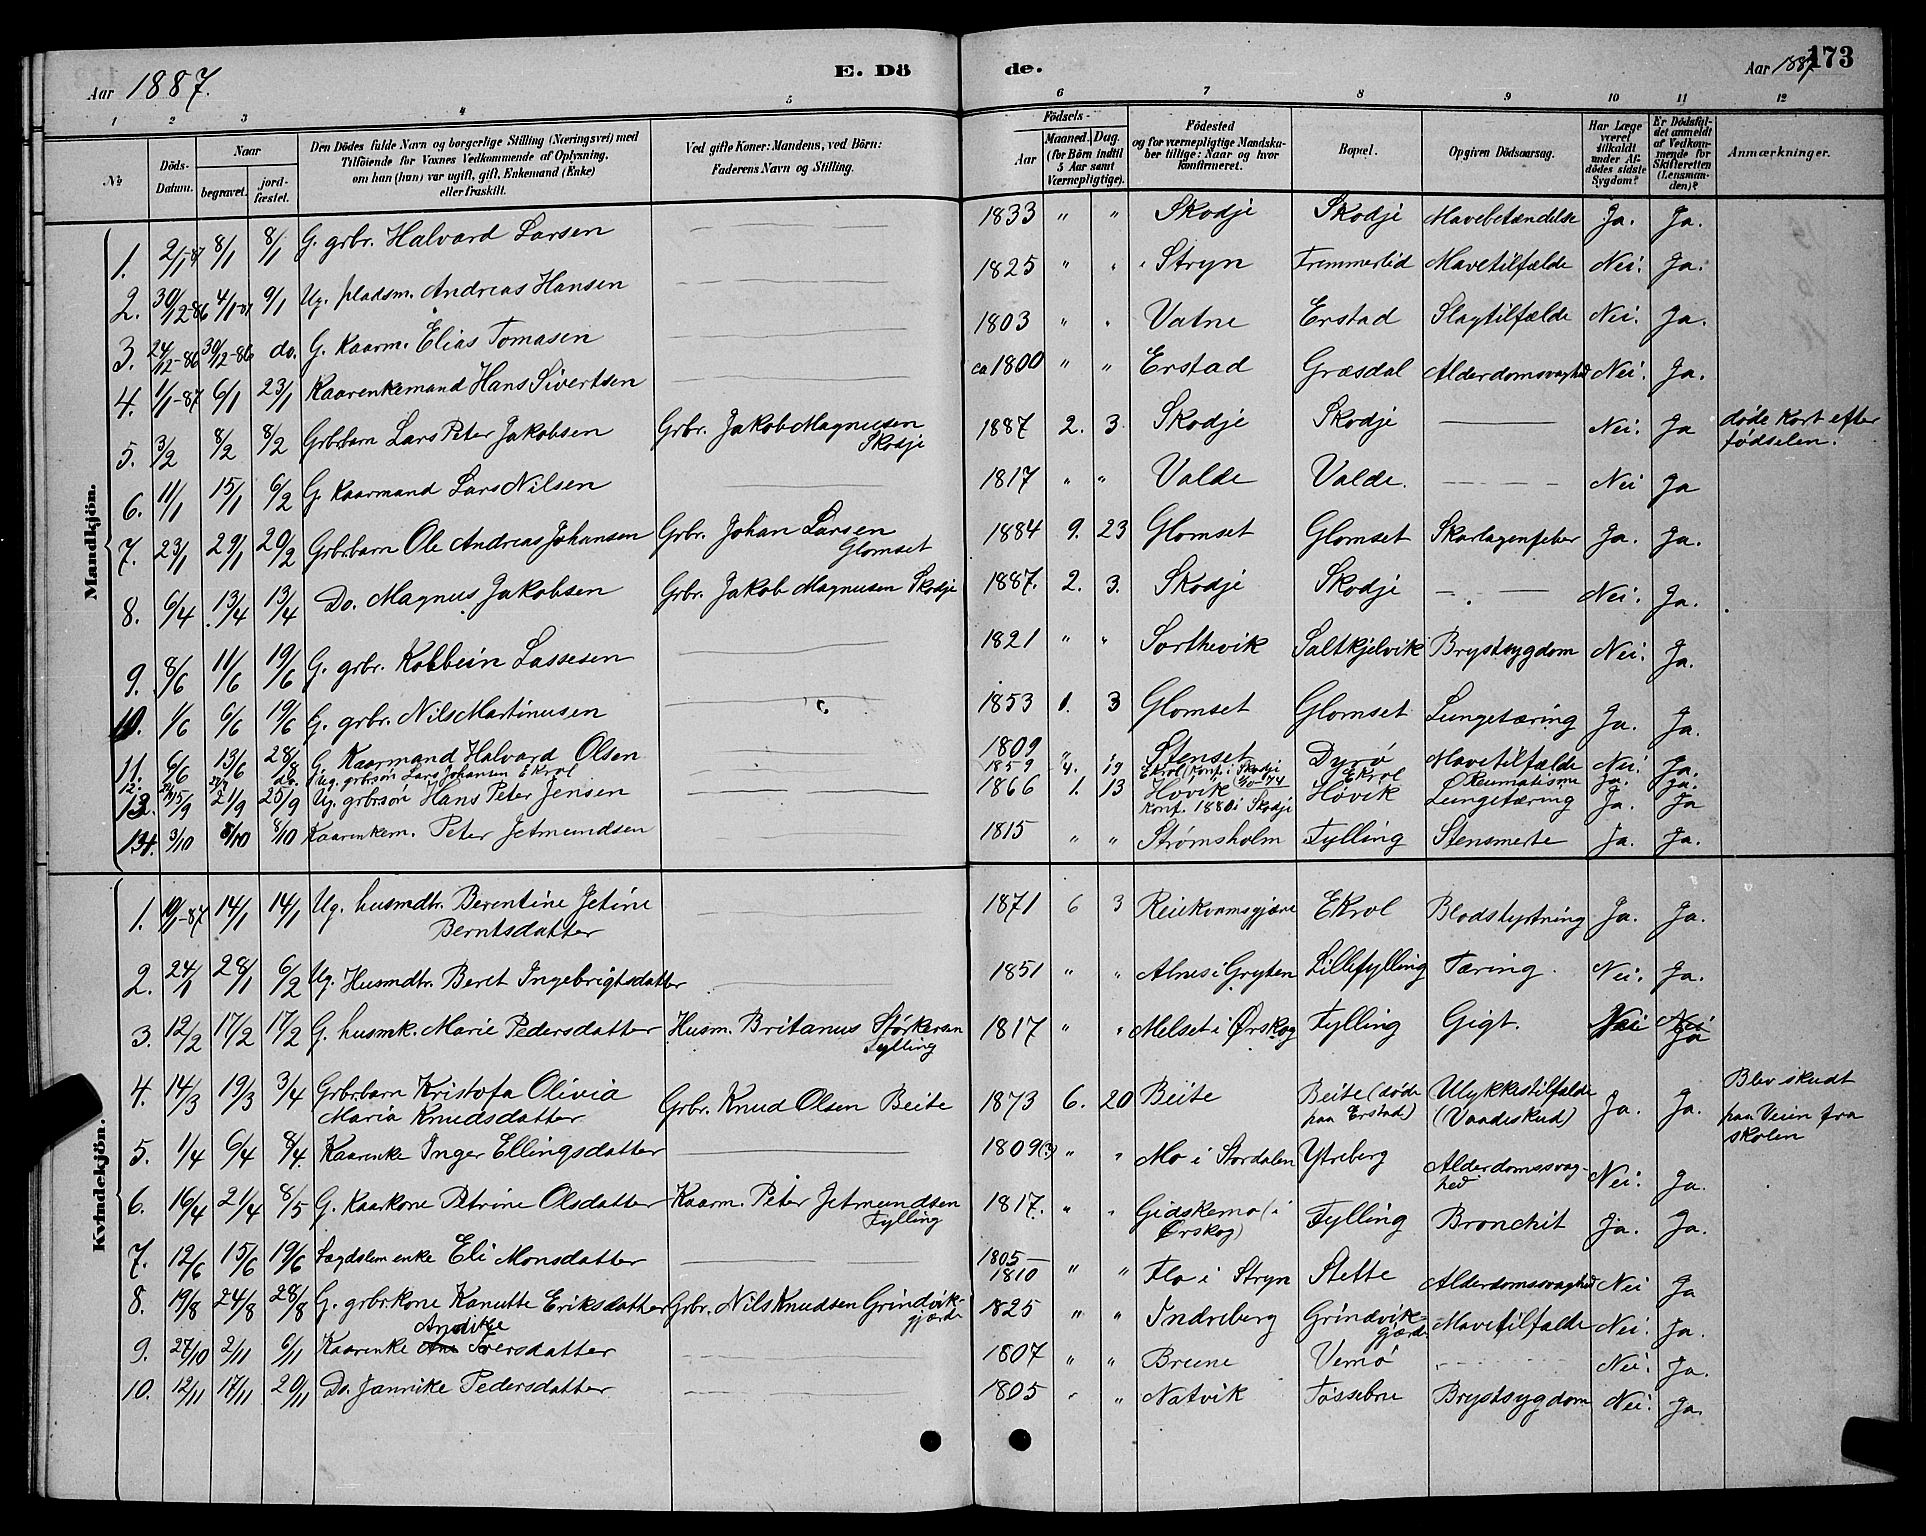 Aar 1887. E. Dö de. Aar 1887 173
1 2 3 4 5 6 7 8 9 10 11 12
No
Döds-Datum.
Naar
begravet.
jordfæstet.
Den Dödes fulde Navn og borgerlige Stilling (Næringsvei) med
Tilföiende for Voxnes Vedkommende af Oplysning,
om han (hun) var ugift, gift, Enkemand (Enke)
eller fraskilt.
Ved gifte Koner: Mandens, ved Börn:
Faderens Navn og Stilling.
Födsels-
Aar
Maaned. Dag.
(for Börn indtil
5 Aar samt
Værnepligtige).
Födested
og for værnepligtige Mandskaber tillige: Naar og hvor
konfirmeret.
Bopæl.
Opgiven Dödsaarsag.
Har Læge
været
tilkaldt
under Afdödes sidste
Sygdom?
Er Dödsfaldet anmeldt
af Vedkommende for
Skifteretten
(Lensmanden)?
Anmærkninger.
Mandkjön.
1. 2/1-87 8/1 8/1 G. grbr. Halvard Larsen 1833 " " Skodje Skodje Mavebetændelse Ja. Ja.
2. 30/12-86 4/1-87 9/1 Ug. pladsm. Andreas Hansen 1825 " " Stryn Fremmerlid Mavetilfælde Nei. Ja.
3. 24/12-86 30/12-86 do. G. Kaarm. Elias Tomasen 1803 " " Vatne Erstad Slagtilfælde Nei. Ja.
4. 1/1-87 6/1 23/1 Kaarenkemand Hans Sivertsen ca 1800 " " Erstad Græsdal Alderdomsvaghed Nei. Ja.
5. 3/2 8/2 8/2 Grbrbarn Lars Peter Jakobsen Grbr. Jakob Magnusen Skodje 1887 2. 3. Skodje Skodje Nei. Ja døde kort efter fødselen.
6. 11/1 15/1 6/2 G. Kaarmand Lars Nilsen 1817 " " Valde Valde. Nei Ja
7. 23/1 29/1 20/2 Grbrbarn Ole Andreas Johansen Grbr. Johan Larsen Glomset 1884 9. 23 Glomset Glomset Skarlagenfeber Ja. Ja.
8. 6/4 13/4 13/4 Do. Magnus Jakobsen Grbr. Jakob Magnusen Skodje 1887. 2. 3. Skodje Skodje Nei. Ja.
9. 8/6 11/6 19/6 G. grbr. Kolbein Lassesen 1821 " " Sorthevik Saltkjelvik Brystsygdom Nei. Ja.
10. 1/6 6/6 19/6 G. grbr. Nils Martinusen 1853 1. 3 Glomset Glomset Lungetæring Ja. Ja.
11. 6/6 13/6 28/8 G. Kaarmand Halvard Olsen 1809 " " Stenset Dyrø Mavetilfælde Nei. Ja.
12. do. Ug. grbrsøn Lars Johansen Ekrol 1859 4. 19 Ekrol (Konf. i Skodje Ekrol Reumatisme Ja. Ja.
13. 15/9 21/9 25/9 Ug. grbrsøn Hans Peter Jensen 1866 1. 13 Høvik Konf. 1880 i Skodje Høvik Lungetæring Ja. Ja
14. 3/10 8/10 8/10 Kaarenkem. Peter Jetmundsen 1815 " " Strømsholm Fylling Stensmerte Ja. Ja.
Kvindekjön.
1. 10/1-87 14/1 14/1 Ug. husmdtr. Berentine Jetine Berntsdatter 1871 6 3 Reiekvamsgjære Ekrol Blodstyrtning Ja. Ja.
2. 24/1 28/1 6/2 Ug. Husmdtr. Beret Ingebrigtsdatter 1851 " " Alnes i Gryten Lillefylling Tæring. Nei. Ja.
3. 12/2 17/2 17/2 G. husmk. Marie Pedersdatter Husm. Britanus Størkersen Fylling 1817 " " Melset i Ørskog Fylling Gigt. Nei Nei Ja
4. 14/3 19/3 3/4 Grbrbarn Kristofa Olivia Maria Knudsdatter Grbr. Knud Olsen Beite 1873 6. 20 Beite Beite (døde paa Erstad) Ulykkestilfælde (Vaadeskud) Ja. Ja. Blev skudt paa Veien fra skolen
5. 1/4 6/4 8/4. Kaarenke Inger Ellingsdatter 1809(?) " " Mo i Stordalen Ytreberg Alderdomssvaghed Nei. Ja.
6. 16/4 21/4 8/5 G. Kaarkone Petrine Olsdatter Kaarm. Peter Jetmundsen Fylling 1817. " " Gidskemo (i Ørskog) Fylling Bronchit Ja. Ja.
7. 12/6 15/6 19/6 Lægdslem enke Eli Monsdatter 1805-1810 " " Flo i Stryn Stette Alderdomssvaghed Nei Ja
8. 19/8 24/8 28/8 G. grbrkone Kanutte Eriksdatter Grbr. Nils Knudsen Grindvikgjærde 1825 " " Indreberg Grindvikgjærde Mavetilfælde Nei. Ja.
9. 27/10 2/11 6/11 Kaarenke Iversdatter 1807 " " Brune Vemø Nei. Ja.
10. 12/11 17/11 20/11 Do. Jannike Pedersdatter 1805 " " Natvik Tøssebre Brystsygdom Nei. Ja.